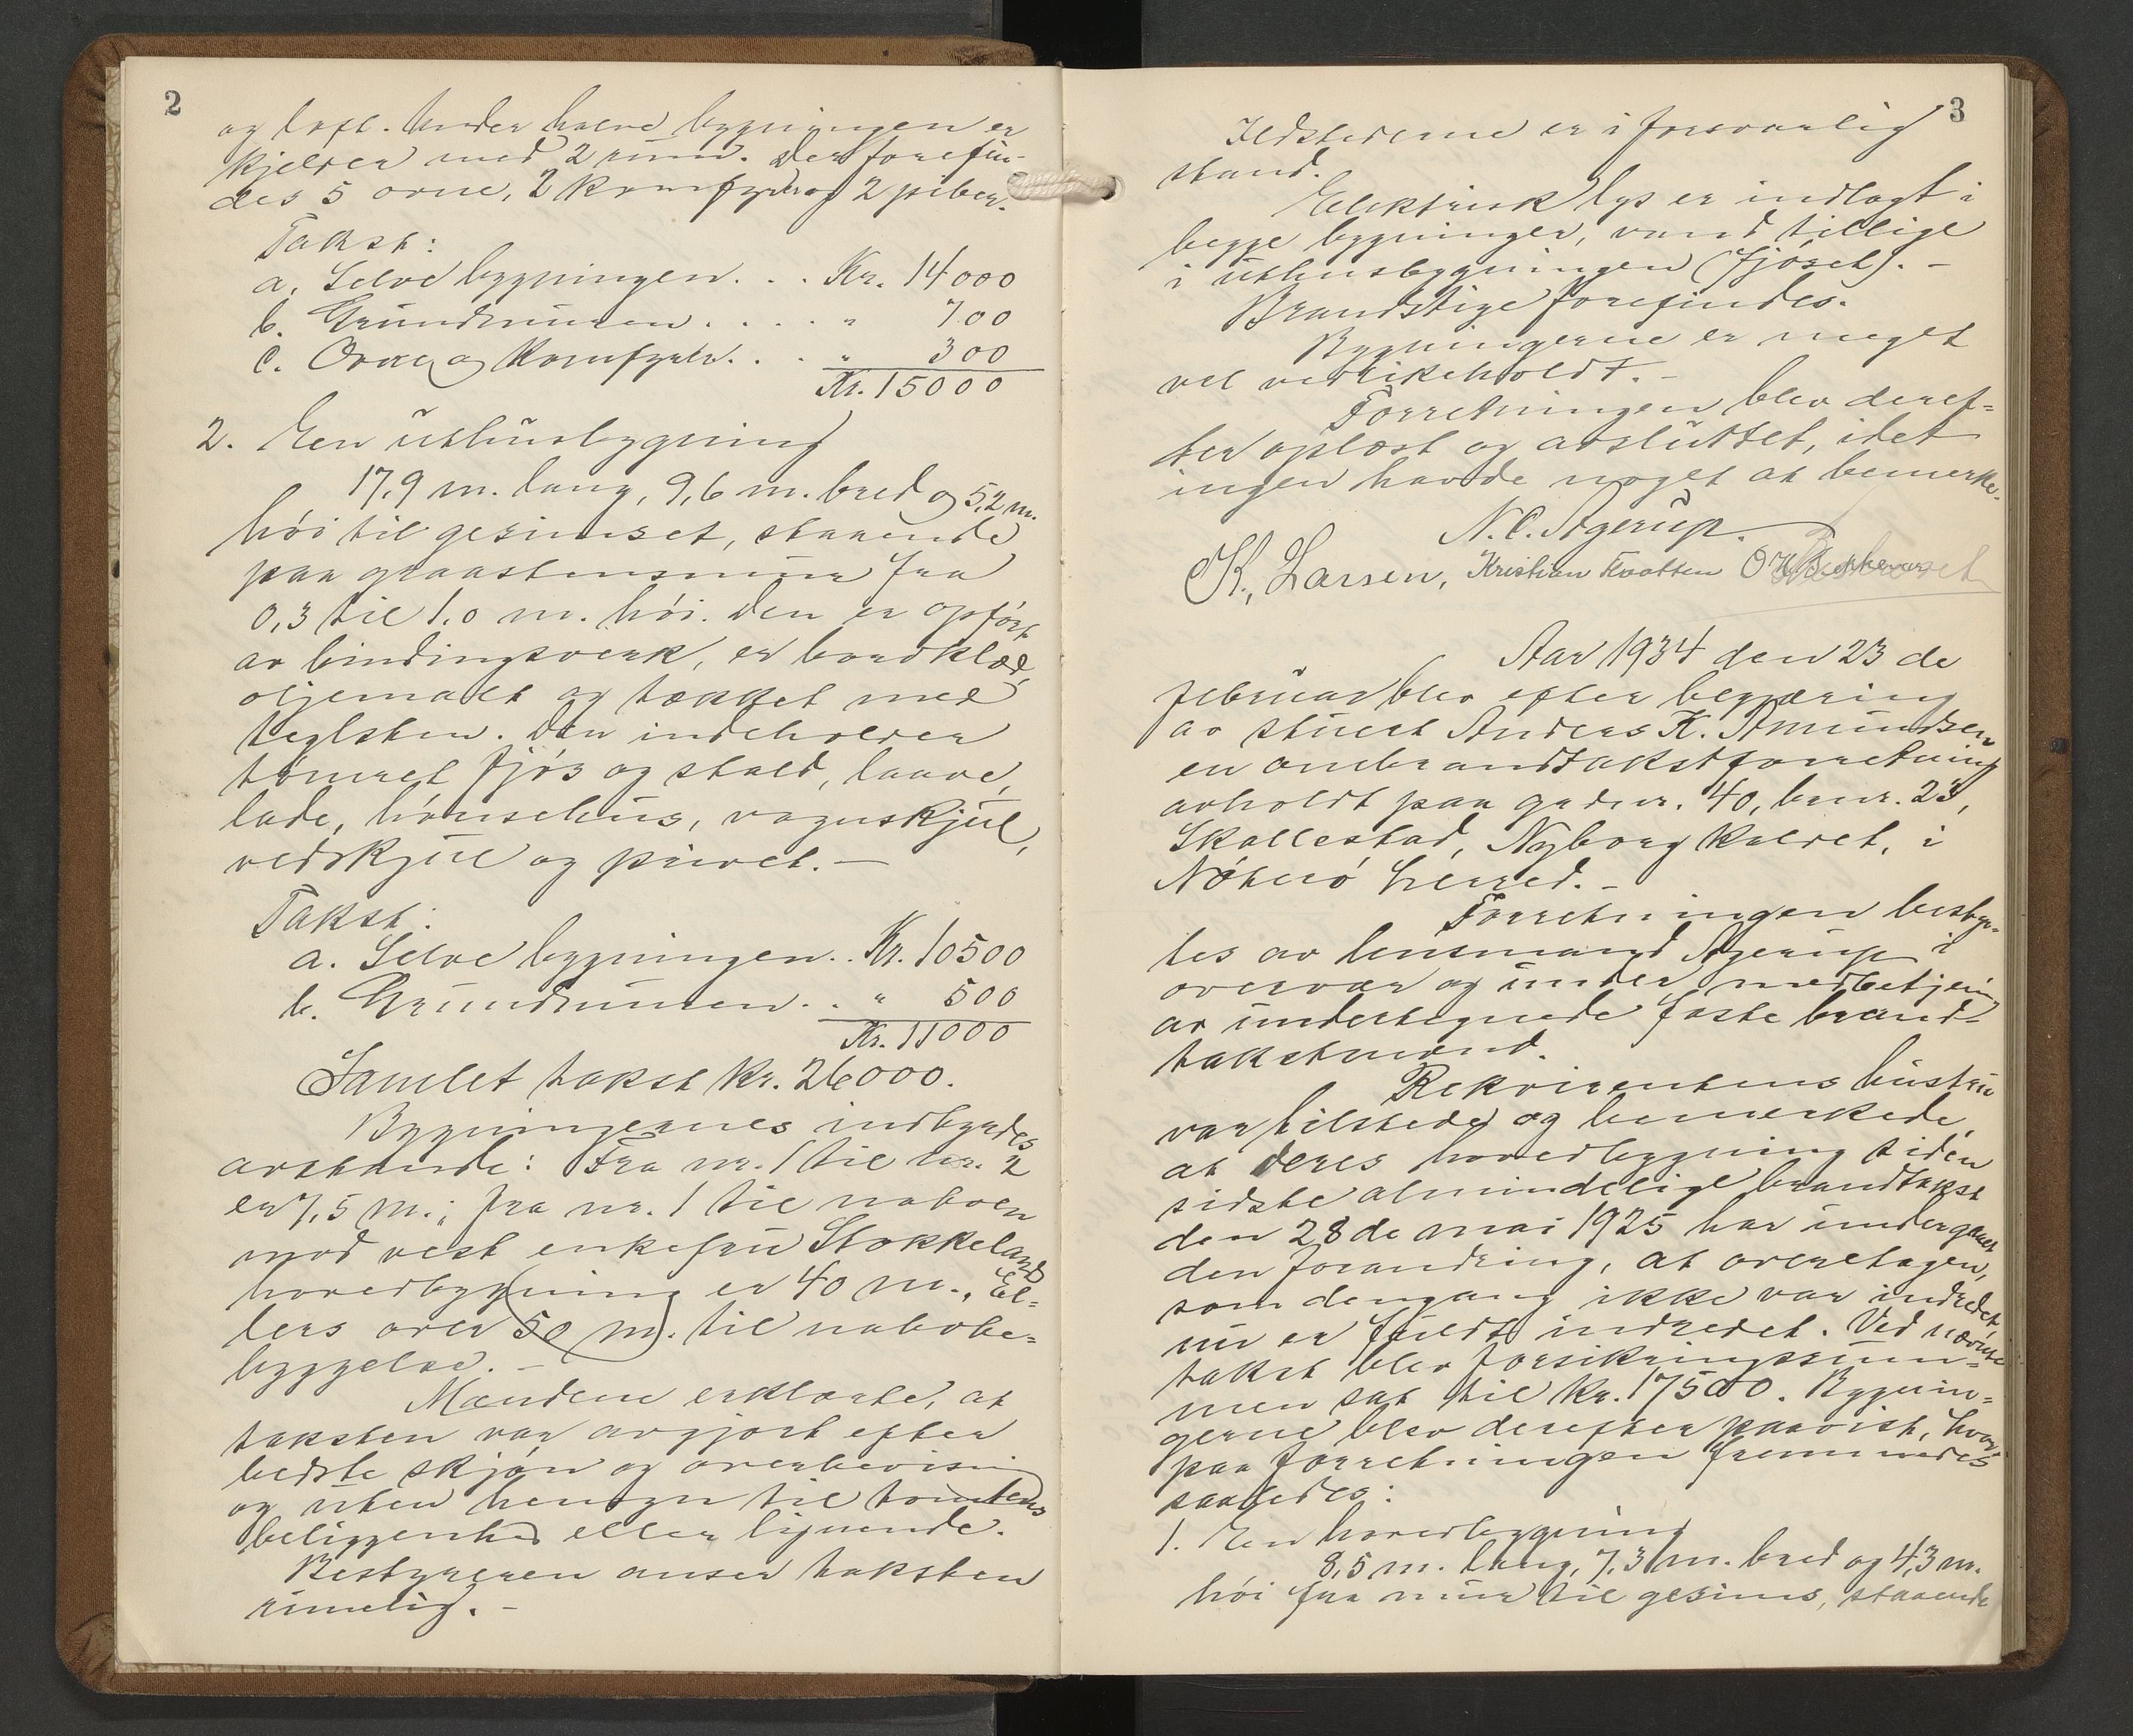 2
og loft. Under halve bygningen er
kjelder med 2 rum. Der forefin-
des 5 ovne, 2 komfyrer og 2 piber.
Takst:
a. Selve bygningen... Kr. 14000
b. Grundmuren..... " 700
c. Ovne og komfyrer... " 300
Kr. 15000
2. En uthusbygning
17,9 m. lang, 9,6 m. bred og 5,2 m.
høi til gesimset, staaende
paa graastensmur fra
0,3 til 1,0 m. høi. Den er opført
av bindingsverk, er bordklæd,
oljemalt og tækket med
teglsten. Den indeholder
tømret fjøs og stald, laave,
lade, hønsehus, vognskjul,
vedskjul og privet. –
Takst:
a. Selve bygningen.. Kr. 10500
b. Grundmuren.. " 500
Kr. 11000
Samlet takst kr. 26000.
Bygningernes indbyrdes
avstande: Fra nr. 1 til nr. 2
er 7,5 m.; fra nr. 1 til naboen
mod vest enkefru Stokkelands
hovedbygning er 40 m., El-
lers over 50 m. til nabobe-
byggelse. –
Mændene erklærte, at
taksten var avgjort efter
bedste skjøn og overbevisning
og uten hensyn til tomtens
beliggenhed eller lignende.
Bestyreren anser taksten
rimelig. –
3
Ildstederne er i forsvarlig
stand.
Elektrisk lys er indlagt i
begge bygninger, vand tillige
i uthusbygningen (fjøset). –
Brandstige forefindes.
Bygningerne er meget
vel vedlikeholdt. –
Forretningen blev deref-
ter oplæst og avsluttet, idet
ingen havde noget at bemerke.
N. C. Agerup.
K. Larsen, Kristian Knatten O. H.
Aar 1934 den 23 de
februar blev efter begjæring
av stuert Anders K. Amundsen
en ombrandtakstforretning
avholdt paa grdnr. 40, brnr. 23,
Skallestad, Nyborg kaldet, i
Nøterø herred. –
Forretningen besty-
tes av lensmand Agerup i
overvær og under medbetjening
av undertegnede faste brand-
takstmænd.
Rekvirentens hustru
var tilstede og bemerkede,
at deres hovedbygning siden
sidste almindelige brandtakst
den 28 de mai 1925 har undergaaet
den forandring, at overetagen,
som dengang ikke var indredet,
nu er fuldt indredet. Ved nævnte
takst blev forsikringssum-
men sat til kr. 17500. Bygnin-
gerne blev derefter paavist, hvor-
paa forretningen fremmedes
saaledes:
1. En hovedbygning
8,5 m. lang, 7,3 m. bred og 4,3 m.
høi fra mur til gesims, staaende